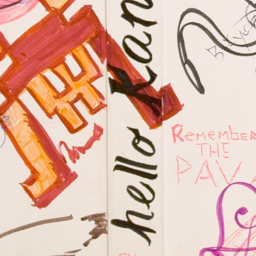 hello Kan
Remember
THE
PAVA